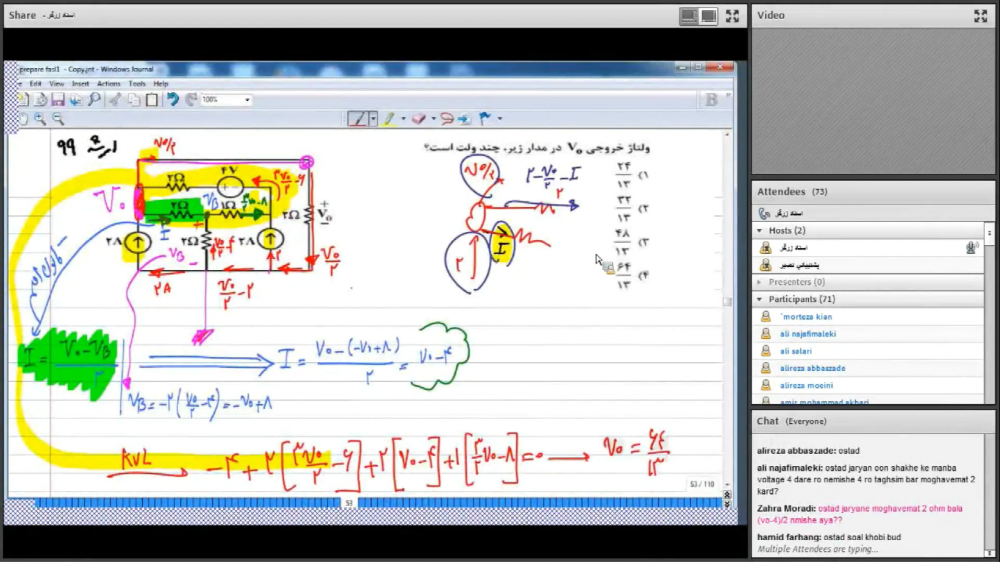 Share
استاد زرگر -
prepare fasl1 - Copy.jnt - Windows Journal
Edit View Insert Actions Tools Help
100%
B
ارشد ۹۹
ولتاژ خروجی V₀ در مدار زیر، چند ولت است؟
۲۴/۱۳ (۱
۳۲/۱۳ (۲
۴۸/۱۳ (۳
۶۴/۱۳ (۴
V₀/۲
۴V
۲Ω
V₀
V_B
۲Ω
۱Ω
۲Ω
V₀
I
۲A
۲Ω
۲A
V_B
V₀/۲
۲A
V₀/۲ - ۲
V₀/۲
۲ - V₀/۲ - I
I
۲
I = V₀ - V_B / ۲
I = V₀ - (-V₀ + ۸) / ۲ = V₀ - ۴
V_B = -۲ (V₀/۲ - ۴) = -V₀ + ۸
KVL
-۴ + ۲ [۳V₀/۲ - ۶] + ۲ [V₀ - ۴] + ۱ [۳/۲ V₀ - ۸] = ۰ → V₀ = ۶۴/۱۳
53
53 / 110
Video
Attendees (73)
استاد زرگر
Hosts (2)
استاد زرگر
پشتیبانی نصیر
Presenters (0)
Participants (71)
`morteza kian
ali najafimaleki
ali salari
alireza abbaszade
alireza moeini
amir mohammad akbari
Chat (Everyone)
alireza abbaszade: ostad
ali najafimaleki: ostad jaryan oon shakhe ke manba voltage 4 dare ro nemishe 4 ro taghsim bar moghavemat 2 kard?
Zahra Moradi: ostad jaryane moghavemat 2 ohm bala (vo-4)/2 nmishe aya??
hamid farhang: ostad soal khobi bud
Multiple Attendees are typing...